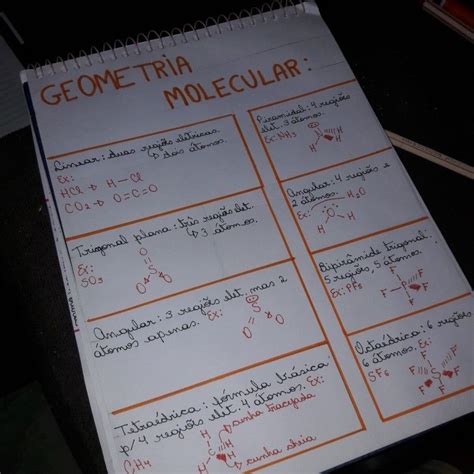 GEOMETRIA
MOLECULAR:
Linear: duas regiões elétricas.
↳ dois átomos.
Ex:
HCl ↳ H—Cl
CO₂ ↳ O=C=O
Trigonal plana: três regiões elet.
↳ 3 átomos.
Ex:
SO₃
O
S
O O
Angular: 3 regiões elet. mas 2
átomos apenas. Ex:
S
O O
Tetraédrica: fórmula básica
p/ 4 regiões elet. 4 átomos. Ex:
CH₄
H
H C H
H
cunha tracejada
cunha cheia
Piramidal: 4 regiões
elet. 3 átomos.
Ex: NH₃
H
H
Angular: 4 regiões e
2 átomos.
Ex: H₂O
O
H H
Bipirâmide trigonal:
5 regiões, 5 átomos.
Ex: PF₅
F
F P F
F F
Octaédrica: 6 regiões
6 átomos.
SF₆
F
F S F
F F